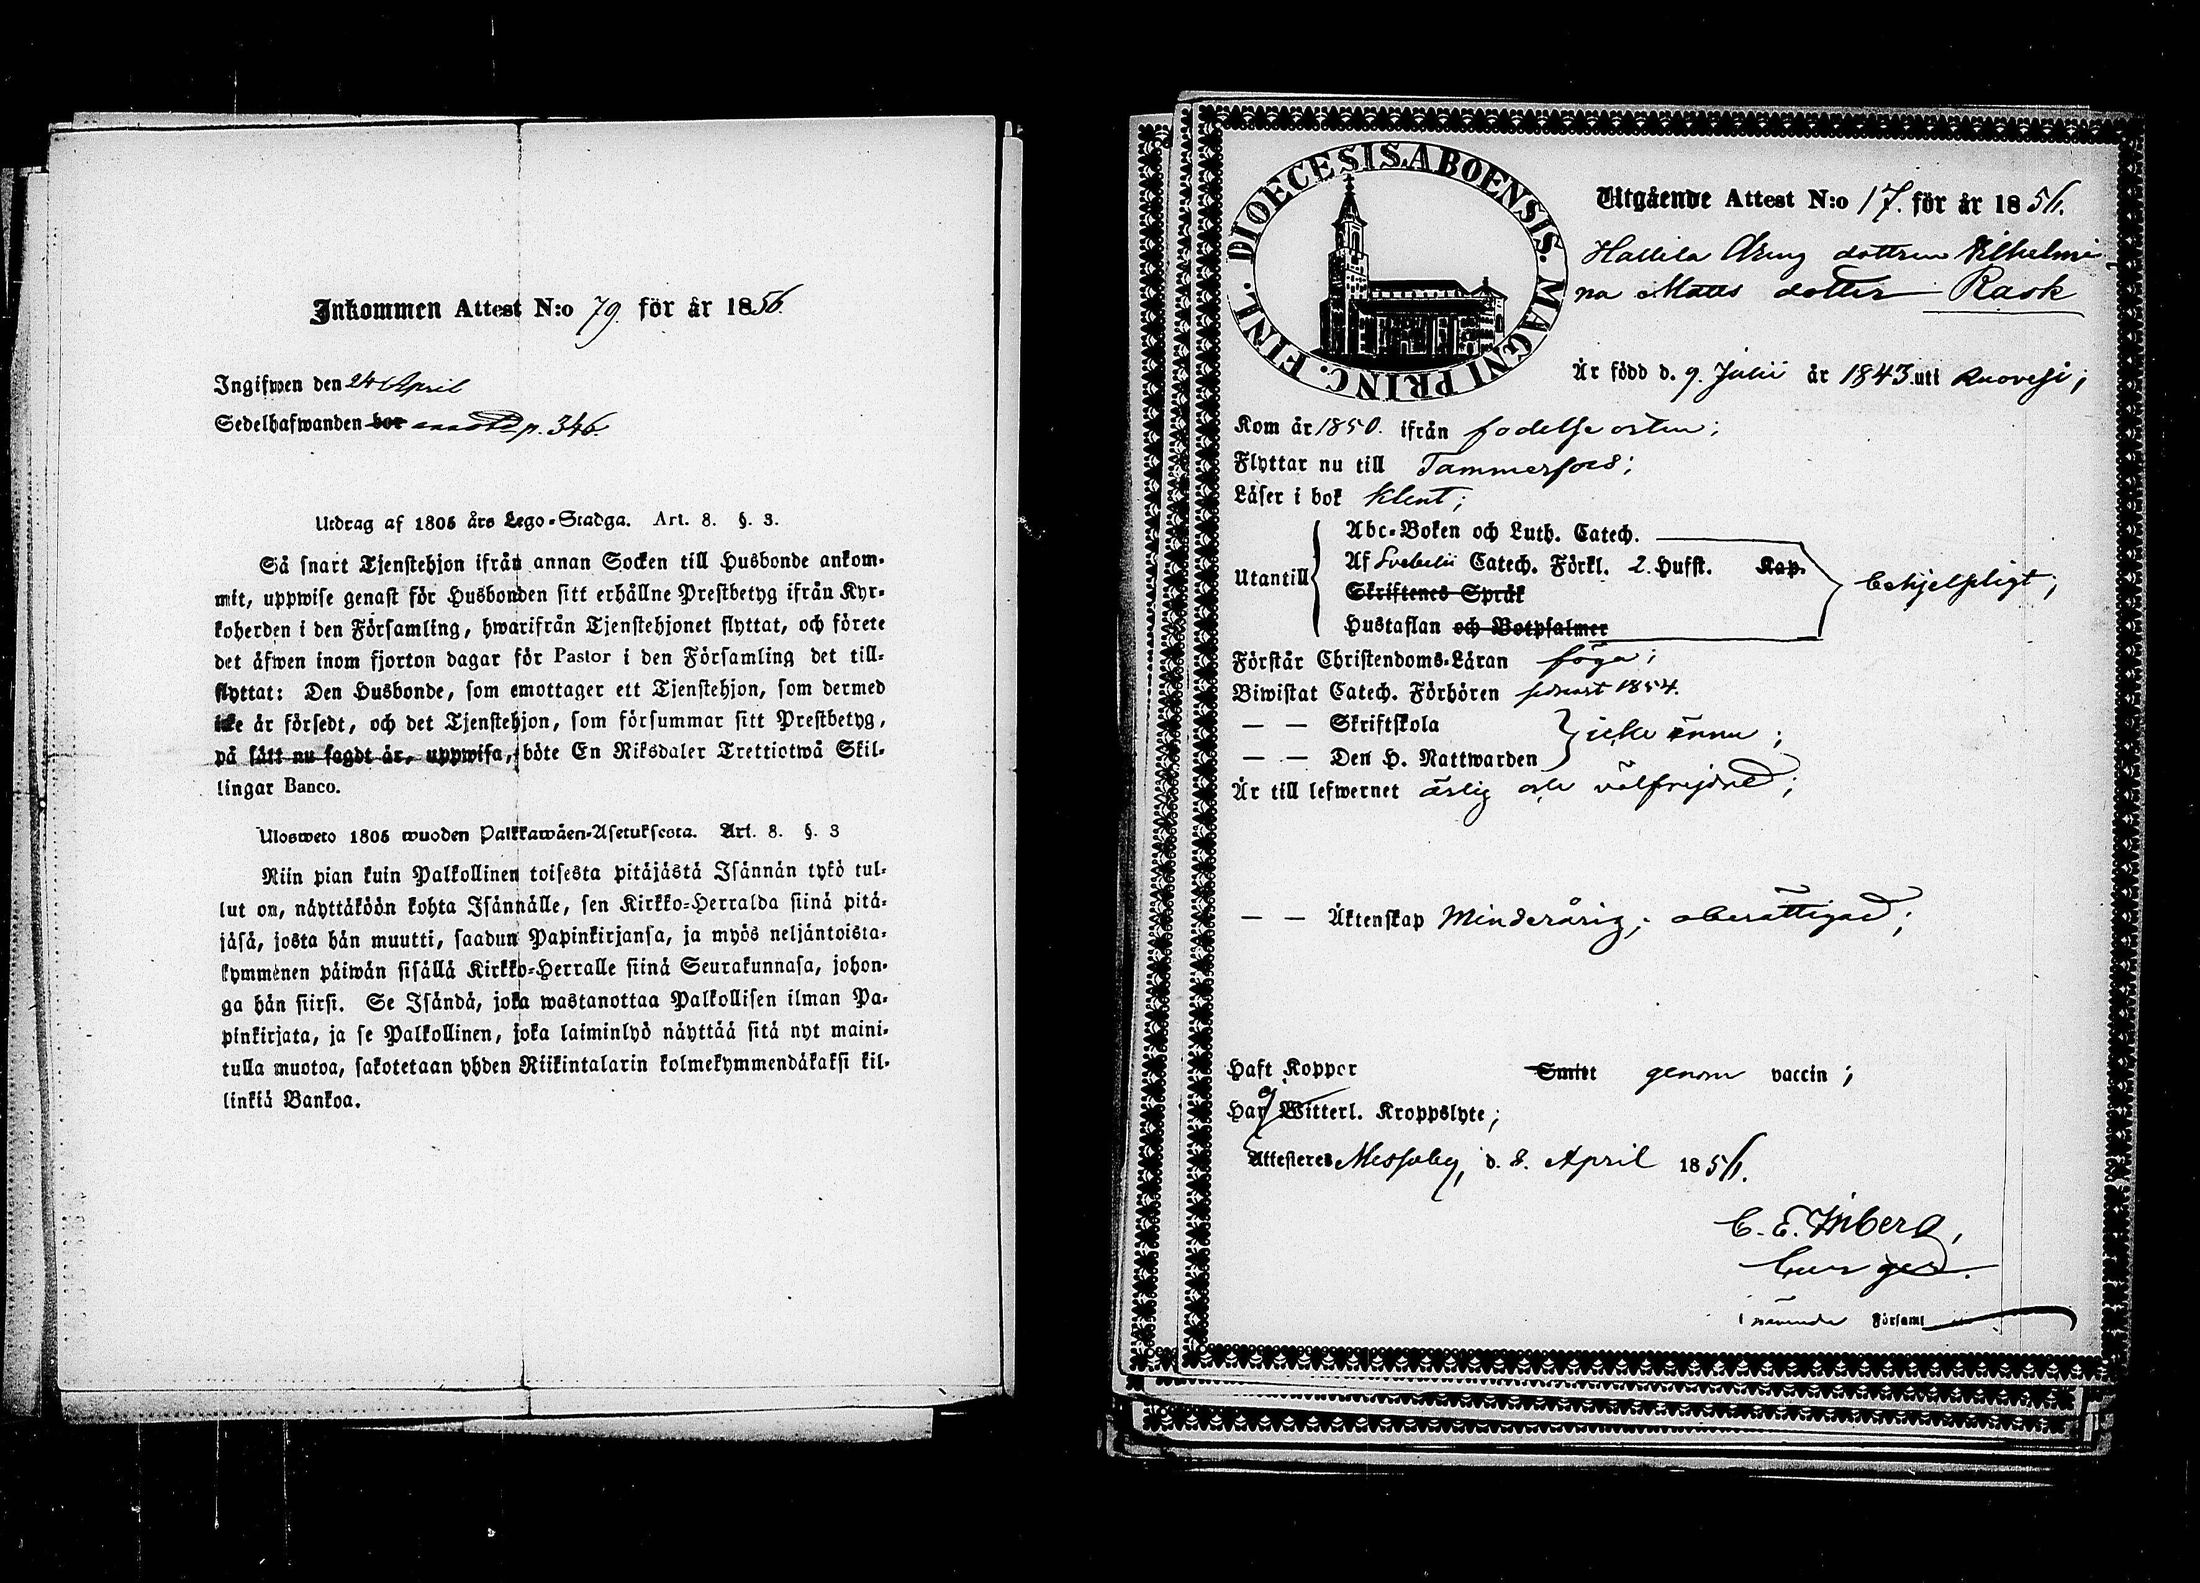 Inkommen Attest N:o 79. för år 1856.
Ingifwen den 24 April
Sedelhafwanden bor p. 346.
Utdrag af 1805 års Lego-Stadga. Art. 8. §. 3.
Så snart Tjenstehjon ifrån annan Socken till Husbonde ankom-
mit, uppwise genast för Husbonden sitt erhållne Prestbetyg ifrån Kyr-
koherden i den Församling, hwarifrån Tjenstehjonet flyttat, och förete
det äfwen inom fjorton dagar för Pastor i den Församling det till-
flyttat: Den Husbonde, som emottager ett Tjenstehjon, som dermed
icke är försedt, och det Tjenstehjon, som försummar sitt Prestbetyg,
på sätt nu sagdt är, uppwisa, böte En Riksdaler Trettiotwå Skil-
lingar Banco.
Ulosweto 1805 wuoden Palkkawäen-Asetuksesta. Art. 8. §. 3
Niin pian kuin Palkollinen toisesta pitäjästä Isännän tykö tul-
lut on, näyttäköön kohta Isännälle, sen Kirkko-Herralda siinä pitä-
jäsä, josta hän muutti, saadun Papinkirjansa, ja myös neljäntoista-
kymmenen päiwän sisällä Kirkko-Herralle siinä Seurakunnasa, johon-
ga hän siirsi. Se Isändä, joka wastanottaa Palkollisen ilman Pa-
pinkirjata, ja se Palkollinen, joka laiminlyö näyttää sitä nyt maini-
tulla muotoa, sakotetaan yhden Riikintalarin kolmekymmendäkaksi kil-
linkiä Bankoa.
DIOECESIS ABOENSIS. MAGNI PRINC. FINL.
Utgående Attest N:o 17. för år 1856.
Hallila dottren Vilhelmi
na Matts dotter Rask
Är född d. 9. Julii år 1843. uti Ruovesi;
Kom år 1850. ifrån födelse orten;
Flyttar nu till Tammerfors;
Läser i bok klent;
Utantill
Abc-Boken och Luth. Catech.
Af Svebelii Catech. Förkl. 2. Hufst. Kap.
Skriftenes Språk
Hustaflan och Botpsalmer
behjelpligt;
Förstår Christendoms-Läran föga;
Biwistat Catech. Förhören senast 1854.
— — Skriftskola
— — Den H. Nattwarden
icke ännu;
Är till lefwernet ärlig och välfrejdad;
— — Äktenskap Minderårig; oberättigad;
Haft Koppor Smitt genom vaccin;
Har Witterl. Kroppslyte;
Attesteres Messuby, d. 8. April 1856.
C. E. Inberg,
i Församl